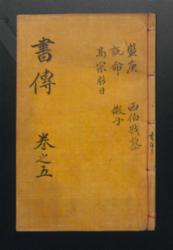 盤庚
說命
高宗肜日
西伯戡黎
微子
書傳
卷之五